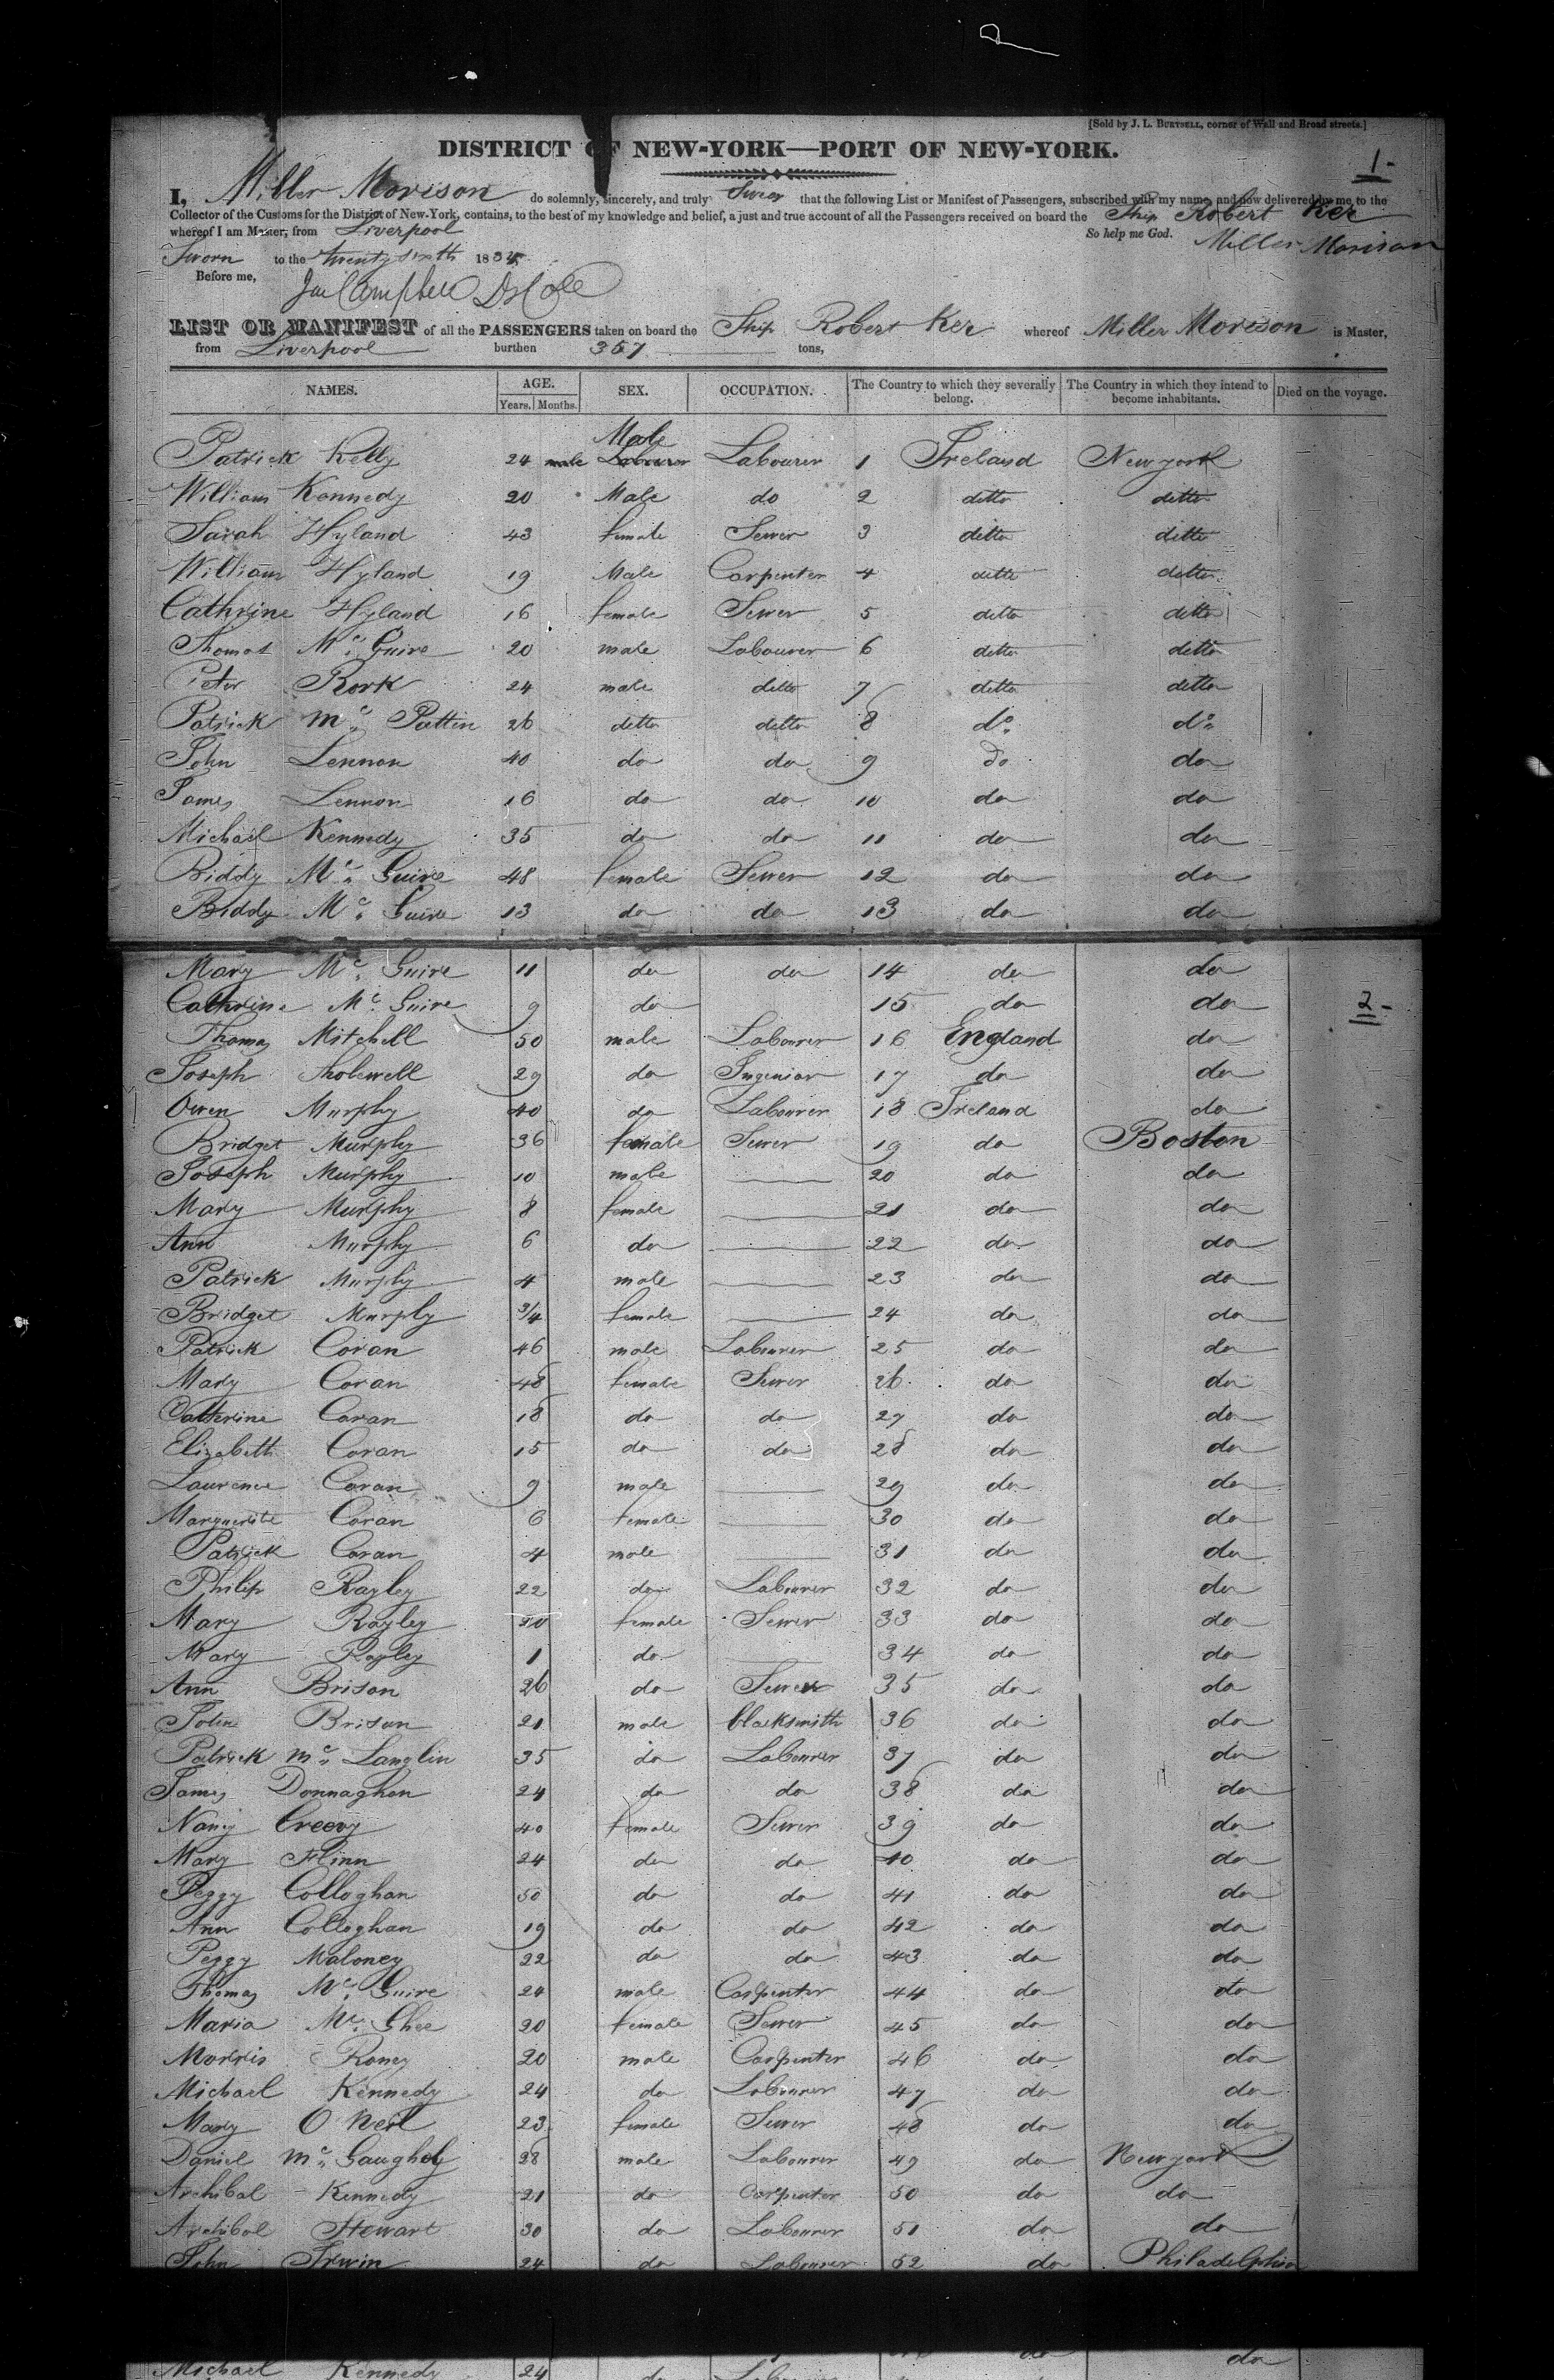 [Sold by J. L. BURTSELL, corner of Wall and Broad streets.]
DISTRICT OF NEW-YORK—PORT OF NEW-YORK.
1-
I, Miller Morison do solemnly, sincerely, and truly Swear that the following List or Manifest of Passengers, subscribed with my name, and now delivered by me to the
Collector of the Customs for the District of New-York, contains, to the best of my knowledge and belief, a just and true account of all the Passengers received on board the Ship Robert Ker
whereof I am Master, from Liverpool So help me God.
Miller Morison
Sworn to the twenty sixth 183
Before me,
LIST OR MANIFEST of all the PASSENGERS taken on board the Ship Robert Ker whereof Miller Morison is Master,
from Liverpool burthen 357 tons,
NAMES. AGE. SEX. OCCUPATION. The Country to which they severally belong. The Country in which they intend to become inhabitants. Died on the voyage.
Years. Months.
Male
Patrick Kelly 24 male Labourer Labourer 1 Ireland New york
William Kennedy 20 Male do 2 ditto ditto
Sarah Hyland 43 female Sewer 3 ditto ditto
William Hyland 19 Male Carpenter 4 ditto ditto
Cathrine Hyland 16 female Sewer 5 ditto ditto
Thomas Mc Guire 20 male Labourer 6 ditto ditto
Peter Rork 24 male ditto 7 ditto ditto
Patrick Mc Pattin 26 ditto ditto 8 do do
John Lennon 40 do do 9 do do
James Lennon 16 do do 10 do do
Michael Kennedy 35 do do 11 do do
Biddy Mc Guire 48 female Sewer 12 do do
Biddy Mc Guire 13 do do 13 do do
Mary Mc Guire 11 do do 14 do do
Cathrine Mc Guire 9 do 15 do do
2-
Thomas Mitchell 50 male Labourer 16 England do
Joseph 29 do Ingenior 17 do do
Owen Murphy 40 do Labourer 18 Ireland do
Bridget Murphy 36 female Sewer 19 do Boston
Joseph Murphy 10 male 20 do do
Mary Murphy 8 female 21 do do
Ann Murphy 6 do 22 do do
Patrick Murphy 4 male 23 do do
Bridget Murphy 3/4 female 24 do do
Patrick Coran 46 male Labourer 25 do do
Mary Coran 48 female Sewer 26 do do
Cathrine Coran 18 do do 27 do do
Elizabeth Coran 15 do do 28 do do
Laurence Coran 9 male 29 do do
Marguerite Coran 6 female 30 do do
Patrick Coran 4 male 31 do do
Philip Rayley 22 do Labourer 32 do do
Mary Rayley 20 female Sewer 33 do do
Mary Rayley 1 do 34 do do
Ann Brison 26 do Sewer 35 do do
John Brison 21 male blacksmith 36 do do
Patrick Mc Langlin 35 do Labourer 37 do do
James Donnaghan 24 do do 38 do do
Nancy Creevy 40 female Sewer 39 do do
Mary Flinn 24 do do 40 do do
Peggy Colloghan 50 do do 41 do do
Ann Colloghan 19 do do 42 do do
Peggy Maloney 22 do do 43 do do
Thomas Mc Guire 24 male Carpenter 44 do do
Maria Mc Ghee 20 female Sewer 45 do do
Morris Roney 20 male Carpenter 46 do do
Michael Kennedy 24 do Labourer 47 do do
Mary O Neil 23 female Sewer 48 do do
Daniel Mc 28 male Labourer 49 do New york
Archibal Kennedy 21 do Carpenter 50 do do
Archibal Stewart 30 do Labourer 51 do do
John Irwin 24 do Labourer 52 do Philadelphia
do
Michael Kennedy 24